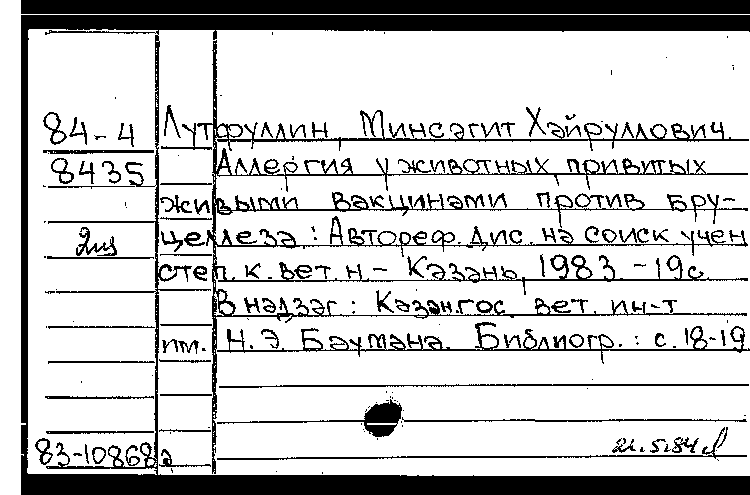 84-4 Лутфуллин, Минсагит Хайруллович.
8435 Аллергия у животных, привитых
живыми вакцинами против бру-
2 целлеза : Автореф. дис. на соиск учен
степ. к. вет. н. - Казань, 1983 - 19с.
В надзаг : Казан. гос. вет. ин-т
им. Н. Э. Баумана. Библиогр. : с. 18-19
83-10868а 21.5.84